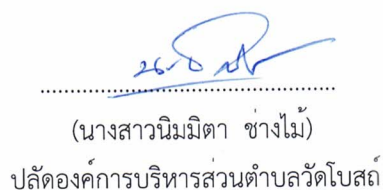 (นางสาวนิมมิตา ช่างไม้)
ปลัดองค์การบริหารส่วนตำบลวัดโบสถ์